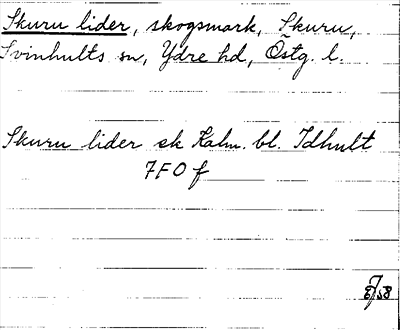 Skuru lider, skogsmark, Skuru,
Svinhults sn, Ydre hd, Östg. l.
Skuru lider sk Kalm. bl. Idhult
7 F 0 f